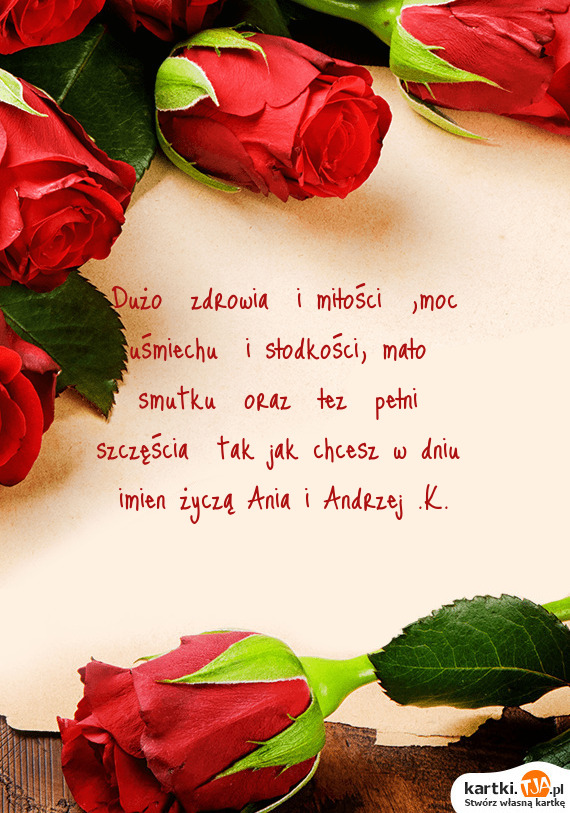 Dużo zdrowia i miłości ,moc
uśmiechu i słodkości, mało
smutku oraz tez pełni
szczęścia tak jak chcesz w dniu
imien życzą Ania i Andrzej .K.
kartki.TJA.pl
Stwórz własną kartkę